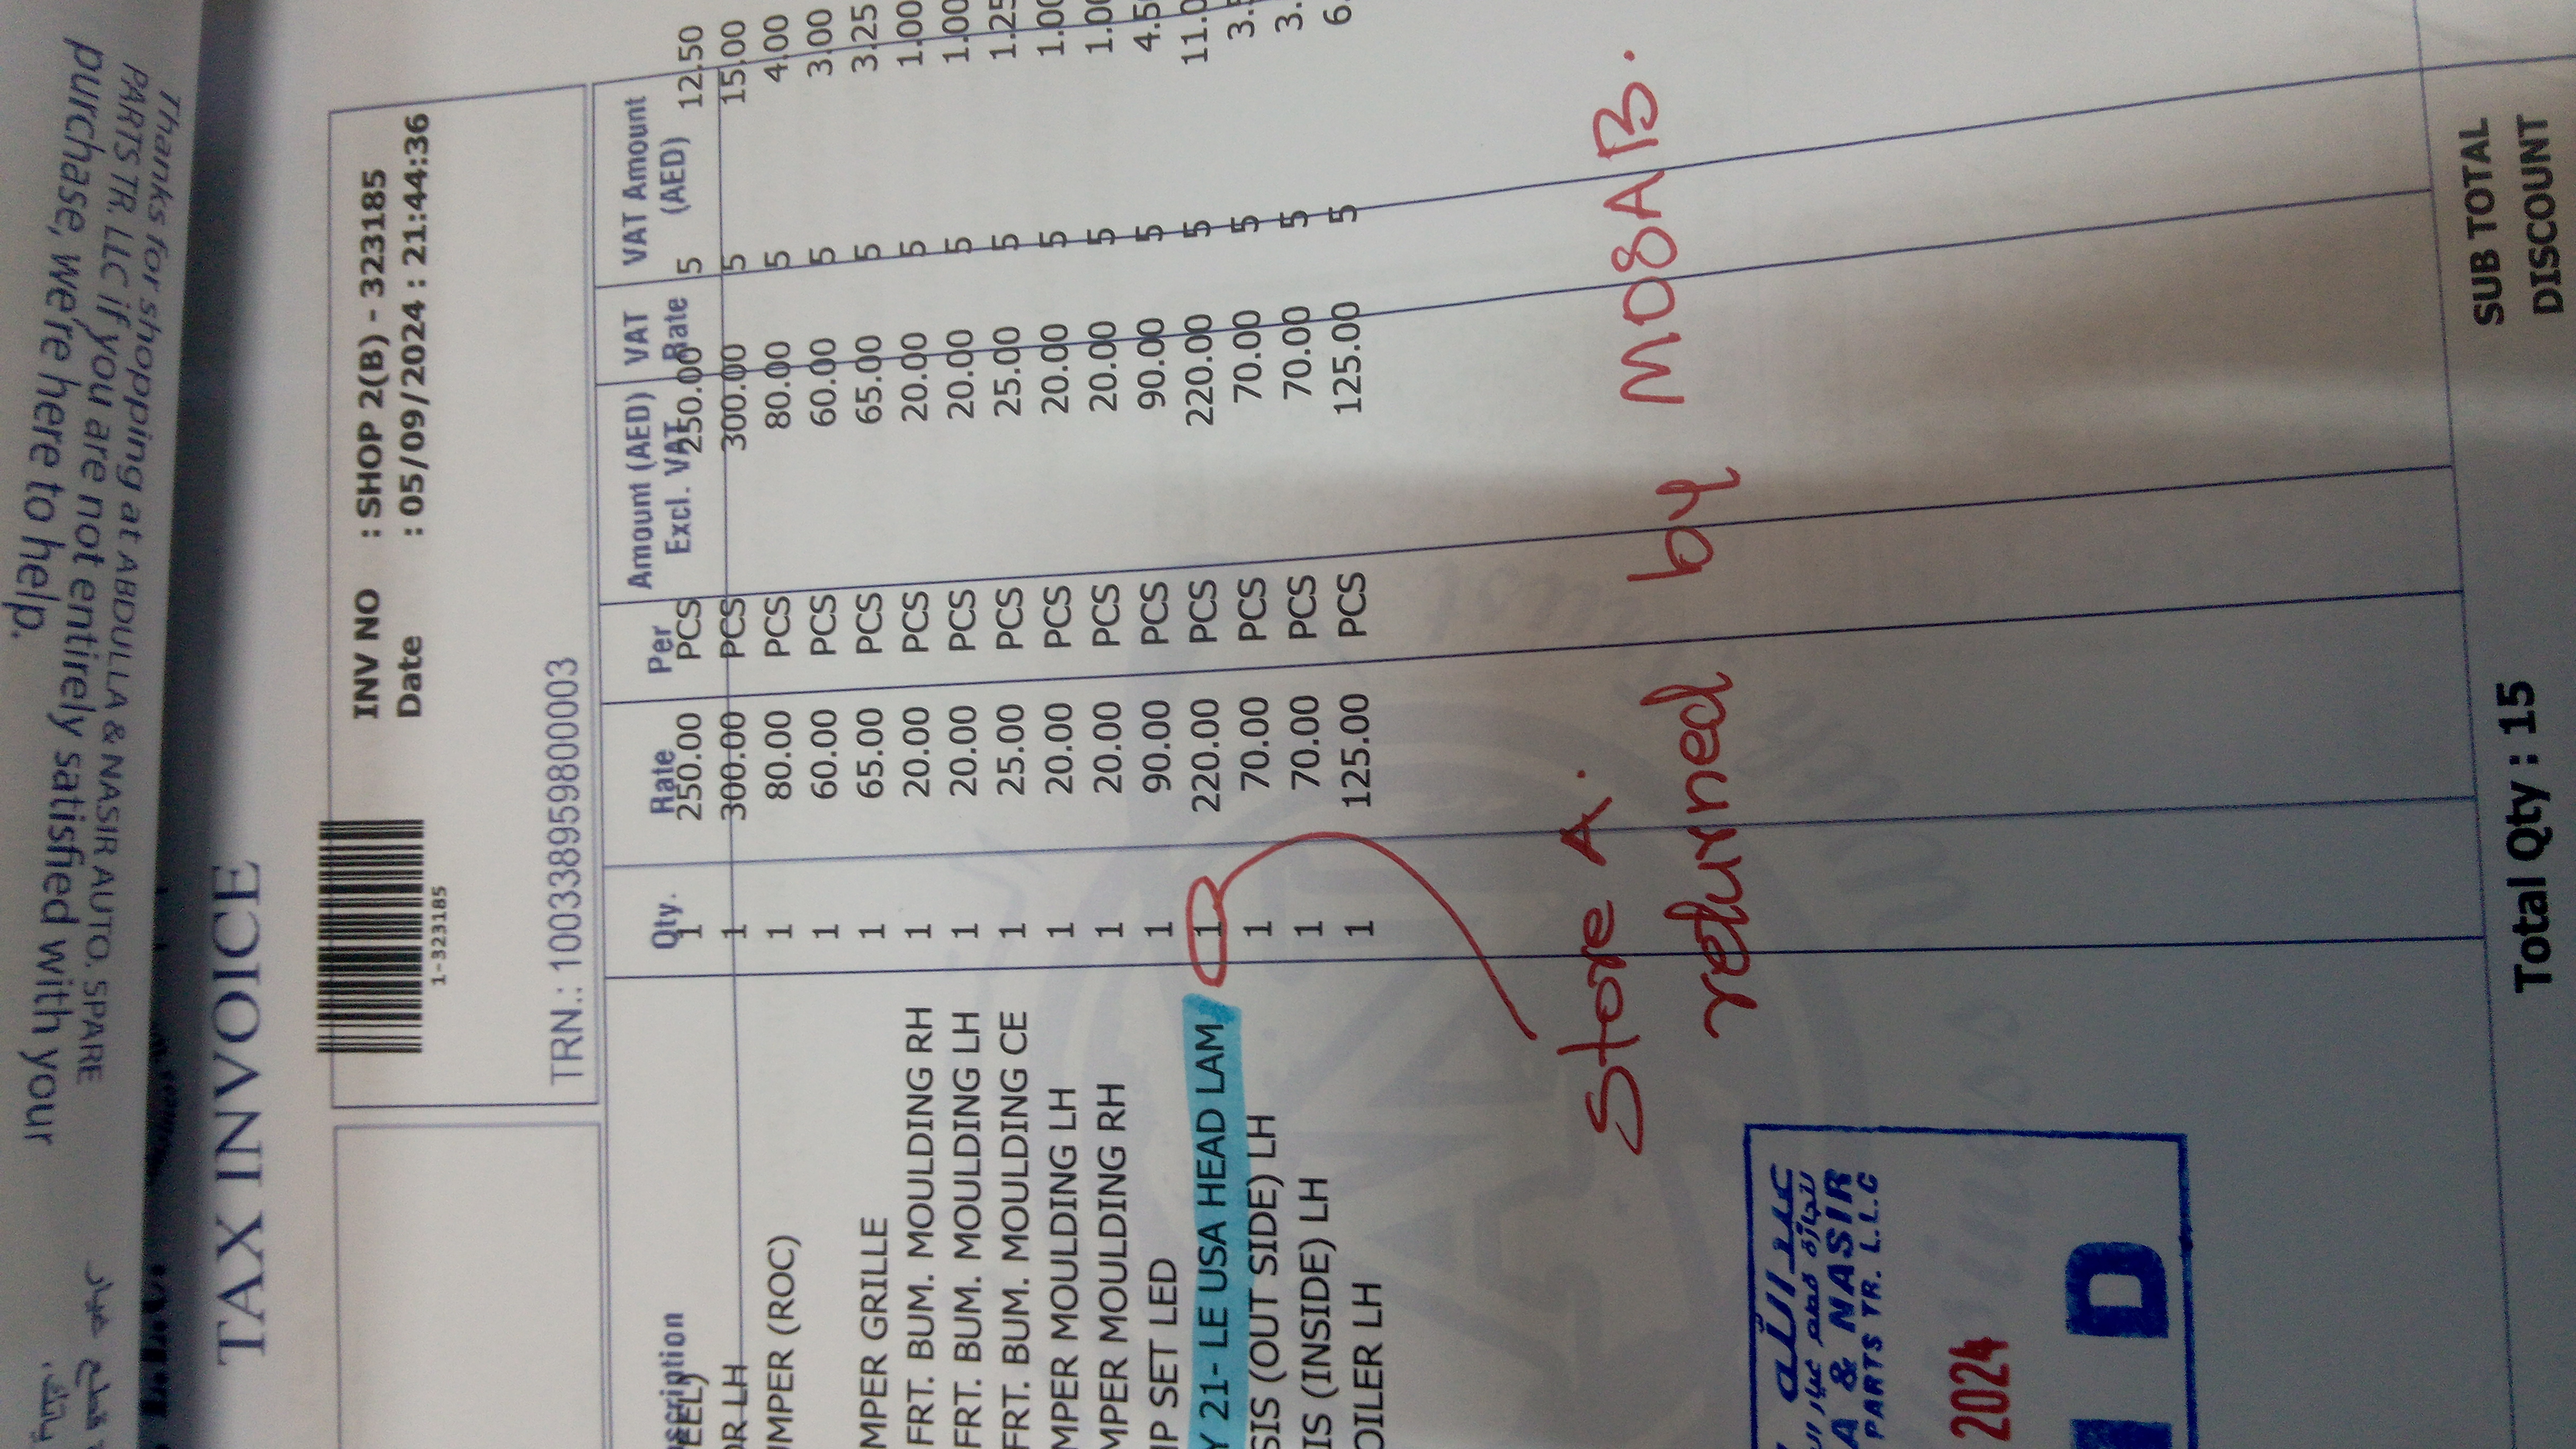 Thanks for shopping at ABDULLA & NASIR AUTO. SPARE
PARTS TR. LLC if you are not entirely satisfied with your
purchase, we're here to help.
TAX INVOICE
1-323185
INV NO : SHOP 2(B) - 323185
Date : 05/09/2024 : 21:44:36
TRN.: 100338959800003
Qty. Rate Per Amount (AED) Excl. VAT VAT Rate VAT Amount (AED)
1 250.00 PCS 250.00 5 12.50
LH 1 300.00 PCS 300.00 5 15.00
(ROC) 1 80.00 PCS 80.00 5 4.00
1 60.00 PCS 60.00 5 3.00
GRILLE 1 65.00 PCS 65.00 5 3.25
FRT. BUM. MOULDING RH 1 20.00 PCS 20.00 5 1.00
FRT. BUM. MOULDING LH 1 20.00 PCS 20.00 5 1.00
FRT. BUM. MOULDING CE 1 25.00 PCS 25.00 5 1.25
MOULDING LH 1 20.00 PCS 20.00 5
MOULDING RH 1 20.00 PCS 20.00 5
SET LED 1 90.00 PCS 90.00 5
21- LE USA HEAD LAM 1 220.00 PCS 220.00 5
(OUT SIDE) LH 1 70.00 PCS 70.00 5
(INSIDE) LH 1 70.00 PCS 70.00 5
LH 1 125.00 PCS 125.00 5
Store A.
returned by MOSAB.
& NASIR
PARTS TR. L.L.C
2024
D
Total Qty : 15
SUB TOTAL
DISCOUNT